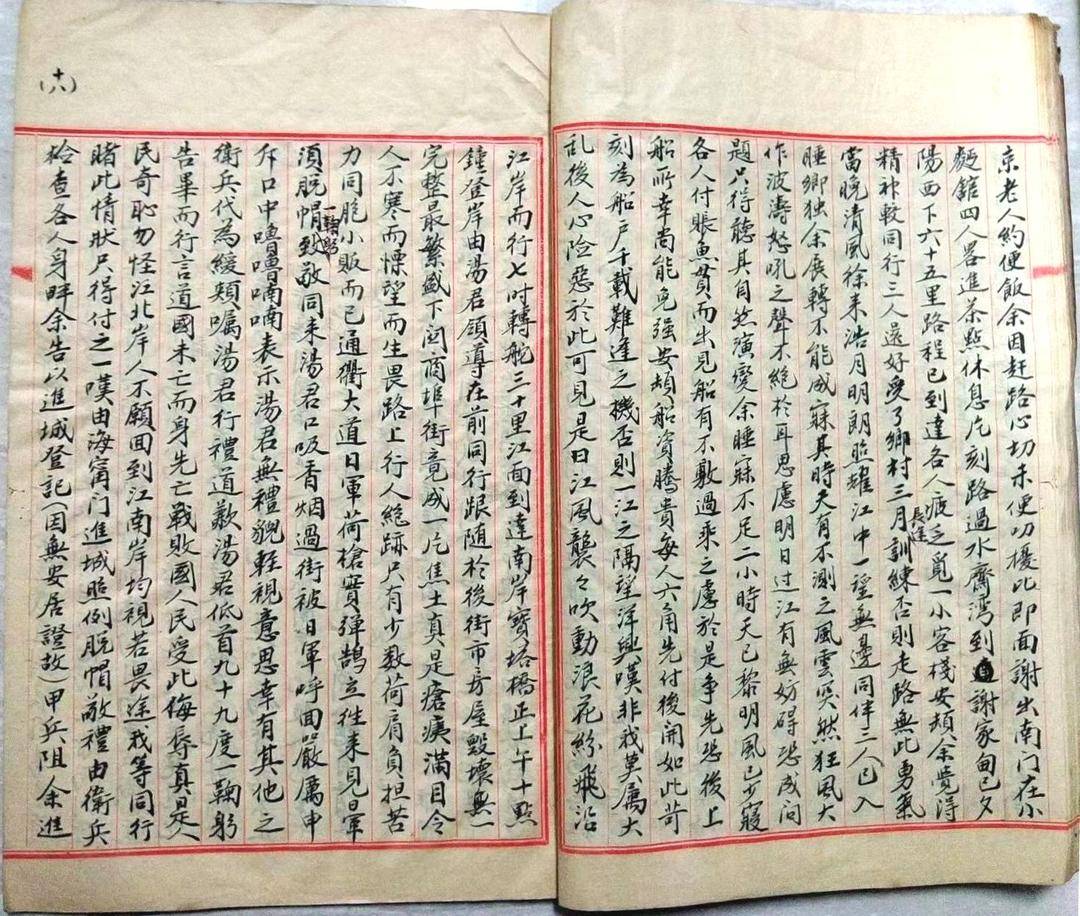 京老人約便飯余因赶路心切未便叨擾比即面謝出南门在小
麵館四人畧進茶點休息片刻路過水齊湾到謝家甸已夕
陽西下六十五里路程已到達各人疲乏覓一小客棧安頓余覺得
精神較同行三人還好受了鄉村三月長途訓練否則走路無此勇氣
當晚清風徐来浩月明朗照耀江中一望無邊同伴三人已入
睡鄉独余展轉不能成寐其時天有不測之風雲突然狂風大
作波濤怒吼之聲不絕於耳思慮明日过江有無妨碍恐成问
題只得聽其自然演變余睡寐不足二小時天已黎明風已少寢
各人付賬魚貫而出見船有不敷過乘之虞於是争先恐後上
船所幸尚能免强安頓船資騰贵每人六角先付後開如此苛
刻為船户千載難逢之機否則一江之隔望洋興嘆非我莫属大
乱後人心险惡於此可見是日江風襲々吹動浪花紛飛沿
(十六)
江岸而行七时轉舵三十里江面到達南岸寶塔橋正上午十點
鐘登岸由湯君領導在前同行跟随於後街市房屋毀壞無一
完整最繁盛下関商埠街竟成一片焦土真是瘡痍滿目令
人不寒而慄望而生畏路上行人絶跡只有少数荷肩負担苦
力同胞小贩而已通衢大道日軍荷槍實弹鵠立往来見日軍
須脱帽一鞠躬致敬同来湯君口吸香烟過街被日軍呼面嚴厲申
斥口中嚕嚕喃喃表示湯君無禮貌輕視意思幸有其他之
衛兵代為緩頰嘱湯君行禮道歉湯君低首九十九度一鞠躬
告畢而行言道國未亡而身先亡戰敗國人民受此侮辱真是人
民奇恥勿怪江北岸人不願回到江南岸均視若畏途我等同行
睹此情狀只得付之一嘆由海甯门進城照例脱帽敬禮由衛兵
检查各人身畔余告以進城登記(因無安居證故)甲兵阻余進